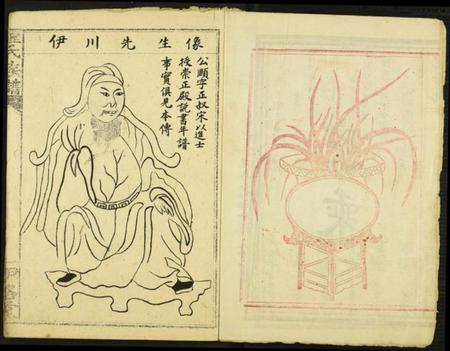 像生先川伊
公頤字正叔宋以進士
授崇正殿說書年譜
事實俱見本傳